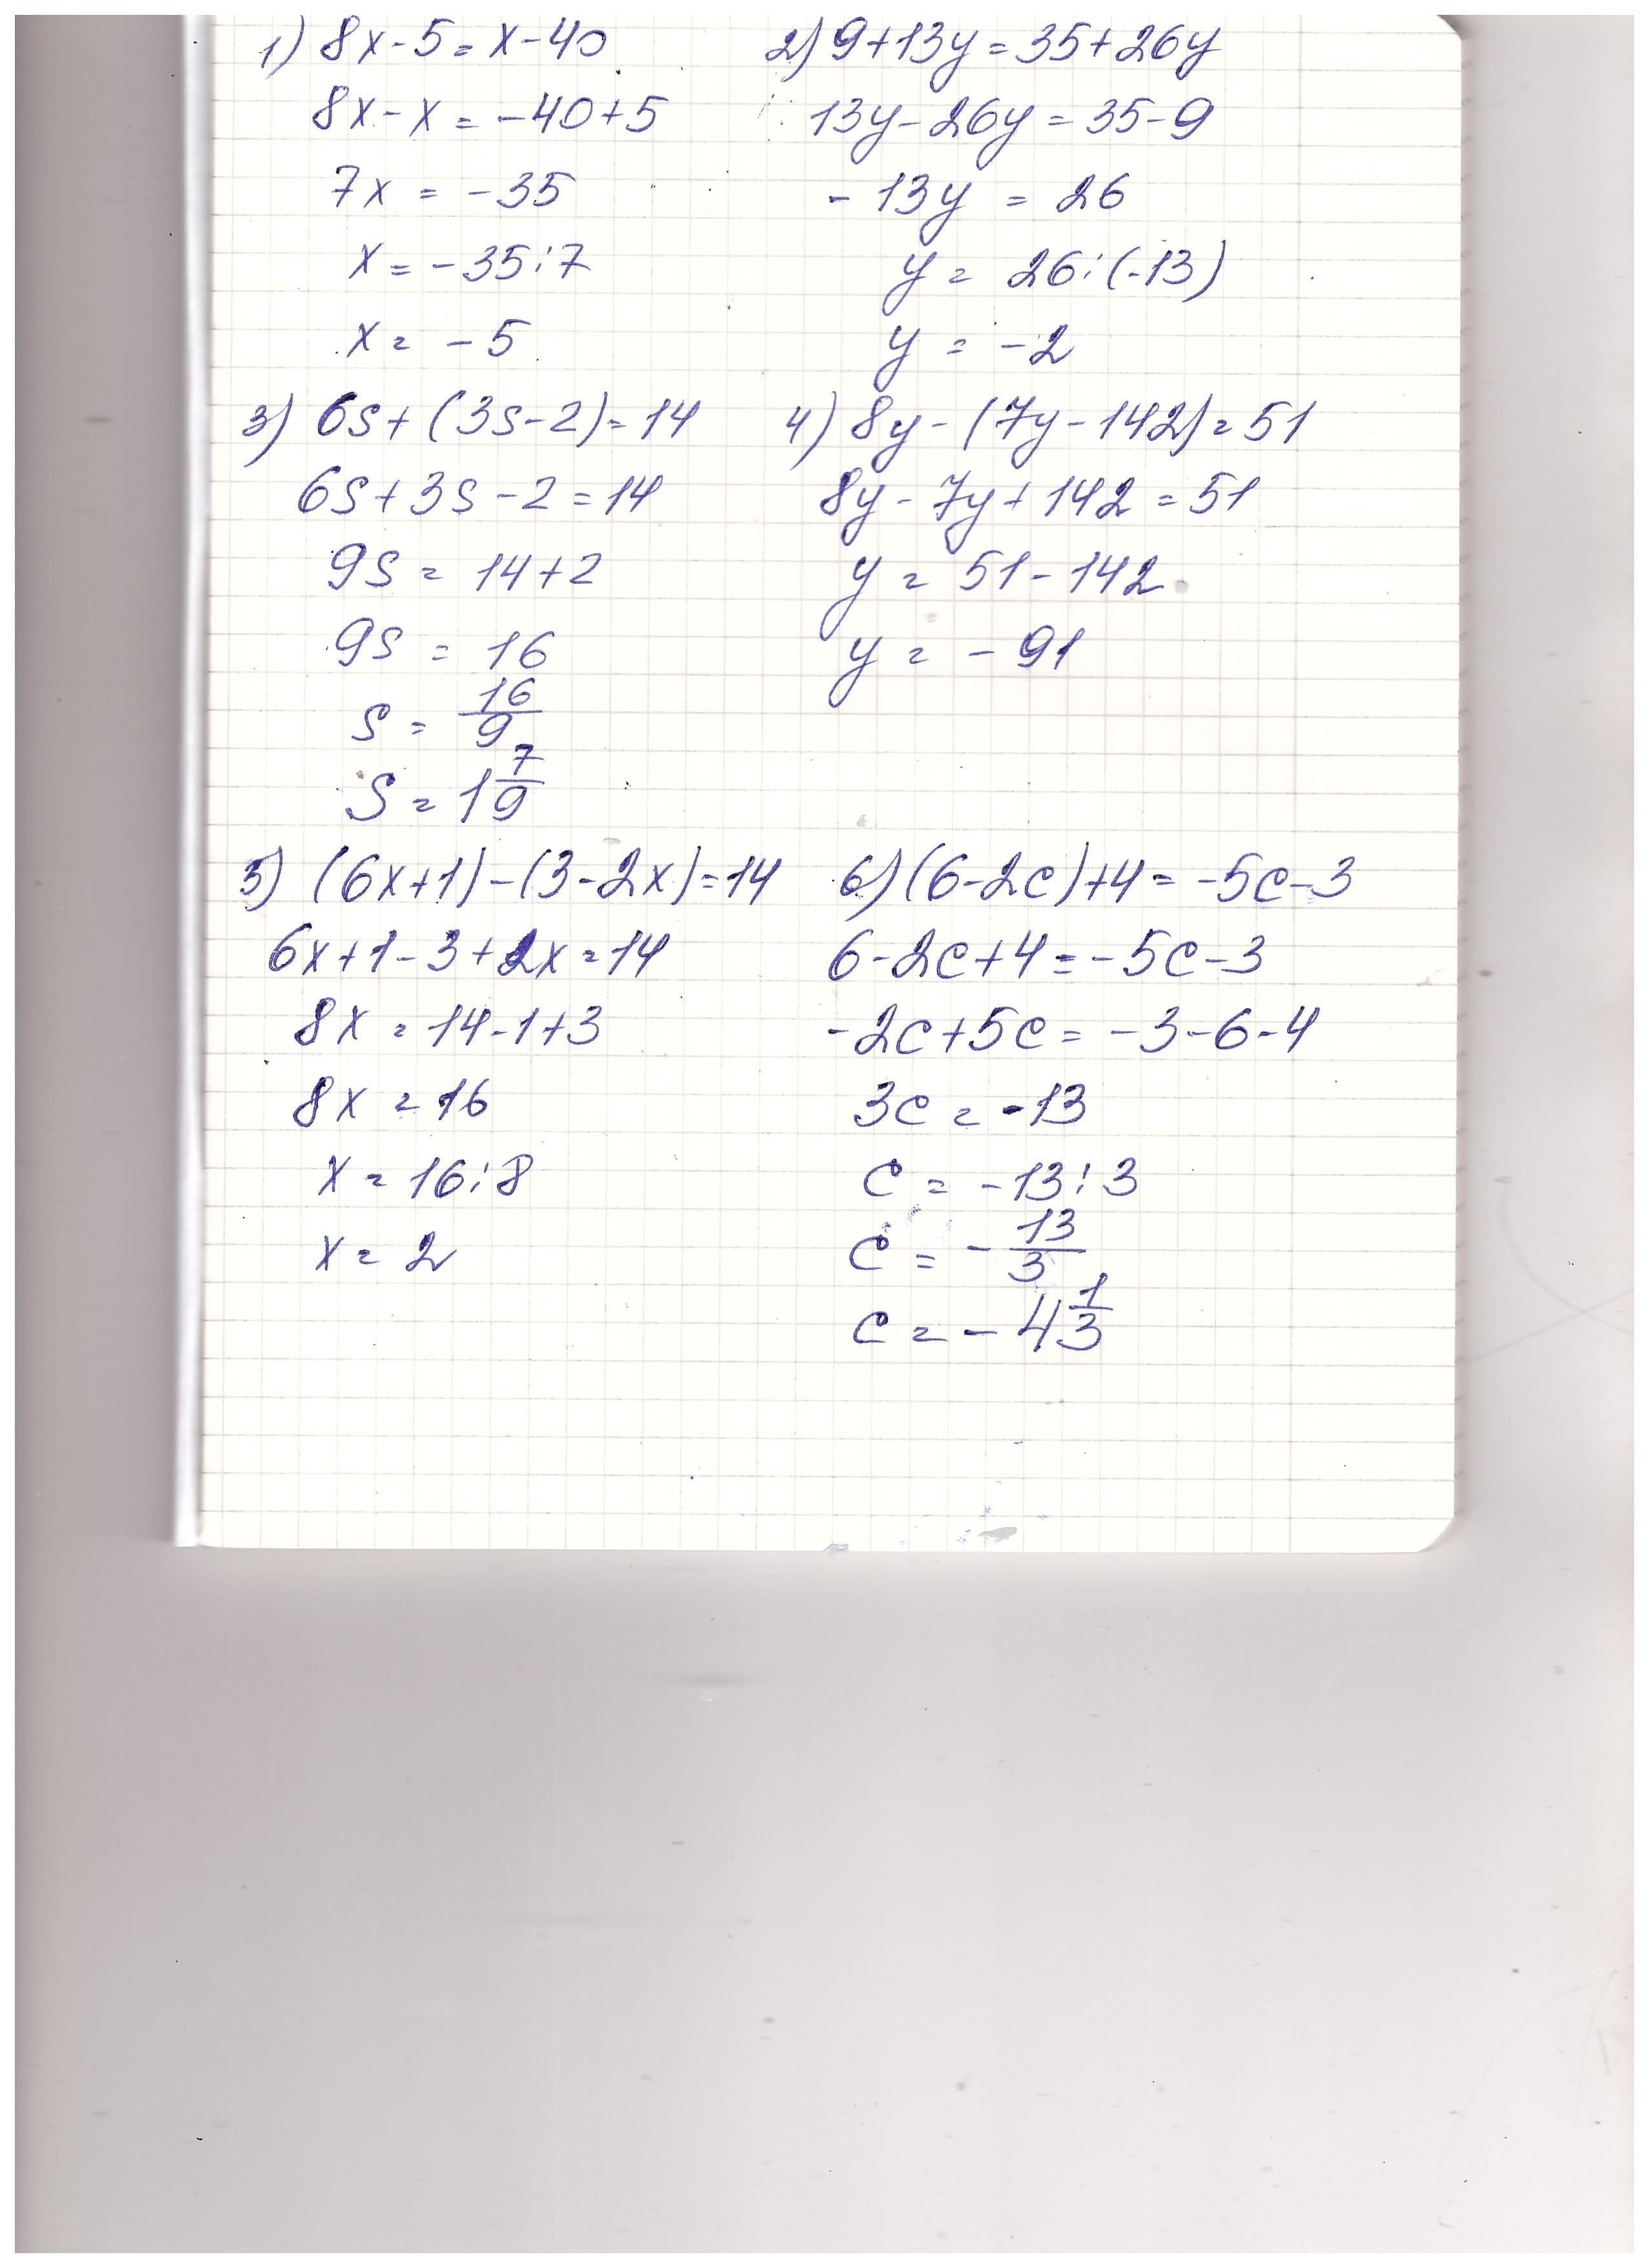 1) 8x-5=x-40
8x-x=-40+5
7x=-35
x=-35:7
x=-5
2) 9+13y=35+26y
13y-26y=35-9
-13y=26
y=26:(-13)
y=-2
3) 6s+(3s-2)=14
6s+3s-2=14
9s=14+2
9s=16
s=16/9
s=1 7/9
4) 8y-(7y-142)=51
8y-7y+142=51
y=51-142
y=-91
5) (6x+1)-(3-2x)=14
6x+1-3+2x=14
8x=14-1+3
8x=16
x=16:8
x=2
6) (6-2c)+4=-5c-3
6-2c+4=-5c-3
-2c+5c=-3-6-4
3c=-13
c=-13:3
c=-13/3
c=-4 1/3